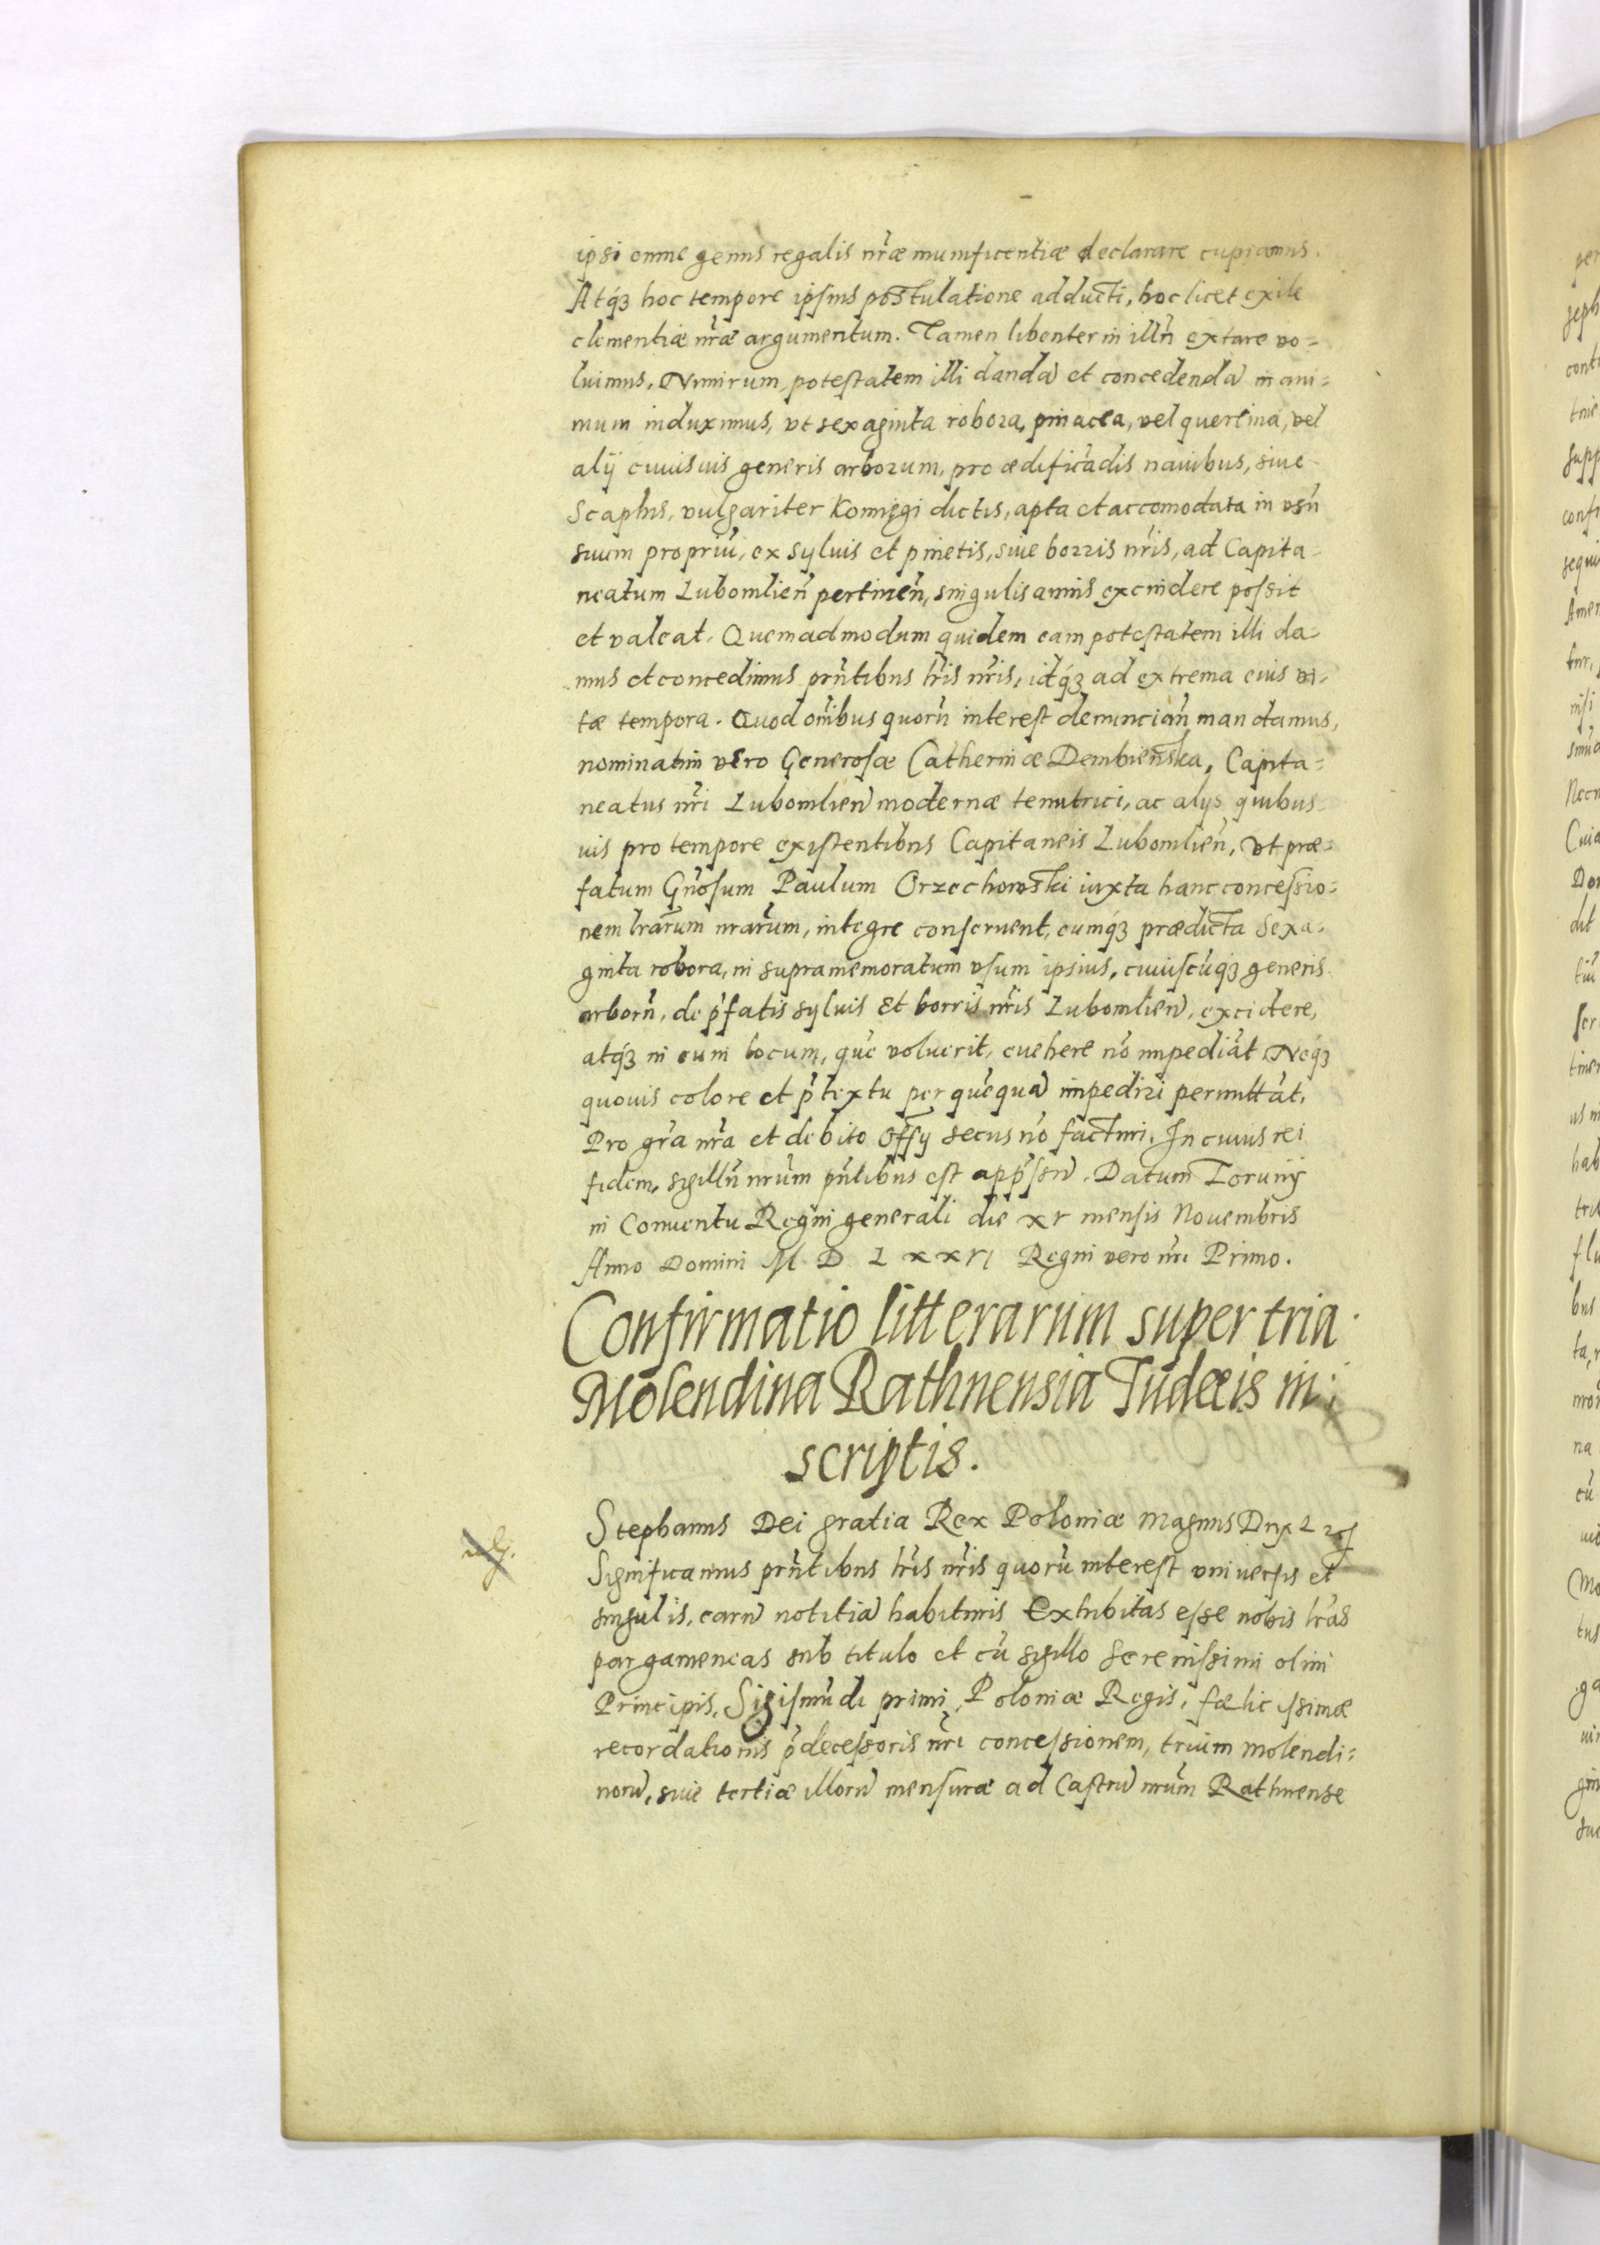 ipsi omne genus regalis nr̃æ munificentiæ declarare cupiamus.
Atq́ꝫ hoc tempore ipsius postulatione adducti, hoc licet exile
clementiæ nr̃æ argumentum. Tamen libenter in illũ extare vo=
luimus, Nimirum, potestatem illi dandã et concedendã in ani=
mum induximus, vt sexaginta robora, pinacea, vel querćina, vel
alij cuiusuis generis arborum, pro ædificãdis nauibus, siue
Scaphis, vulgariter Komięgi dictis, apta et accomodata in vsũ
suum propriũ, ex syluis et pinetis, siue borris nr̃is, ad Capita=
neatum Lubomlień pertineń, singulis annis excindere possit
et valeat. Quemadmodum quidem eam potestatem illi da=
mus et concedimus prñtibus lr̃is nr̃is, idq́ꝫ ad extrema eius vi=
tæ tempora. Quod oĩbus quorũ interest denunciań, mandamus,
nominatim vero Generosæ Catherinæ Dembieńska, Capita=
neatus nr̃i Lubomlień modernæ tenutrici, ac alijs quibus
uis pro tempore existentibus Capitaneis Lubomlień, Vt præ=
fatum Gñosum Paulum Orzechowski iuxta hanc concessio=
nem lr̃arum nrãrum, integre conseruent, eumq́ꝫ prædicta sexa=
ginta robora, in supramemoratum vsum ipsius, cuiuscũq́ꝫ generis
arborũ, de p̃fatis syluis Et borris nr̃is Lubomlień, excidere,
atq́ꝫ in eum locum, quẽ voluerit, euehere nõ impediãt, Neq́ꝫ
quouis colore et p̃textu per quẽquã impediri permittãt,
Pro gr̃a nr̃a et debito Offĩj secus nõ facturi. In cuius rei
fidem, sigillũ nr̃um pñtibus est app̃ssũ. Datum Torunij
in Conuentu Regni generali die xv mensis Nouembris
Anno Domini M D L x x vi Regni vero nr̃i Primo.
Confirmatio litterarum super tria
Molendina Rathnensia Iudæis in:
scriptis.
Stephanus Dei gratia Rex Poloniæ Magnus Dux L
Significamus prñtibus lr̃is nr̃is quorũ interest vniuersis et
singulis, earũ notitiã habituris Exhibitas esse nobis lr̃as
pargameneas sub titulo et cũ sigillo Serenissimi olim
Principis, Sigismũdi primi, Poloniæ Regis, fælicissimæ
recordationis p̃decessoris nr̃i concessionem, trium molendi=
norũ, siue tertiæ illorũ mensuræ ad Castrũ nr̃um Rathnense